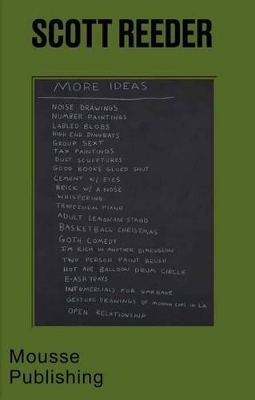 SCOTT REEDER
MORE IDEAS
NOISE DRAWINGS
NUMBER PAINTINGS
LABLED BLOBS
HIGH END DINGBATS
GROUP SEXT
TAX PAINTINGS
DUST SCULPTURES
GOOD BOOKS GLUED SHUT
CEMENT W/ EYES
BRICK W/ A NOSE
WHISPERING
PIANO
ADULT LEMONADE STAND
BASKETBALL CHRISTMAS
GOTH COMEDY
I'M RICH IN ANOTHER DIMENSION
TWO PERSON PAINT BRUSH
HOT AIR BALLOON DRUM CIRCLE
E-ASH TRAYS
INFOMERCIALS FOR GARBAGE
GESTURE DRAWINGS OF MOVING CARS IN LA
OPEN RELATIONSHIP
Mousse
Publishing